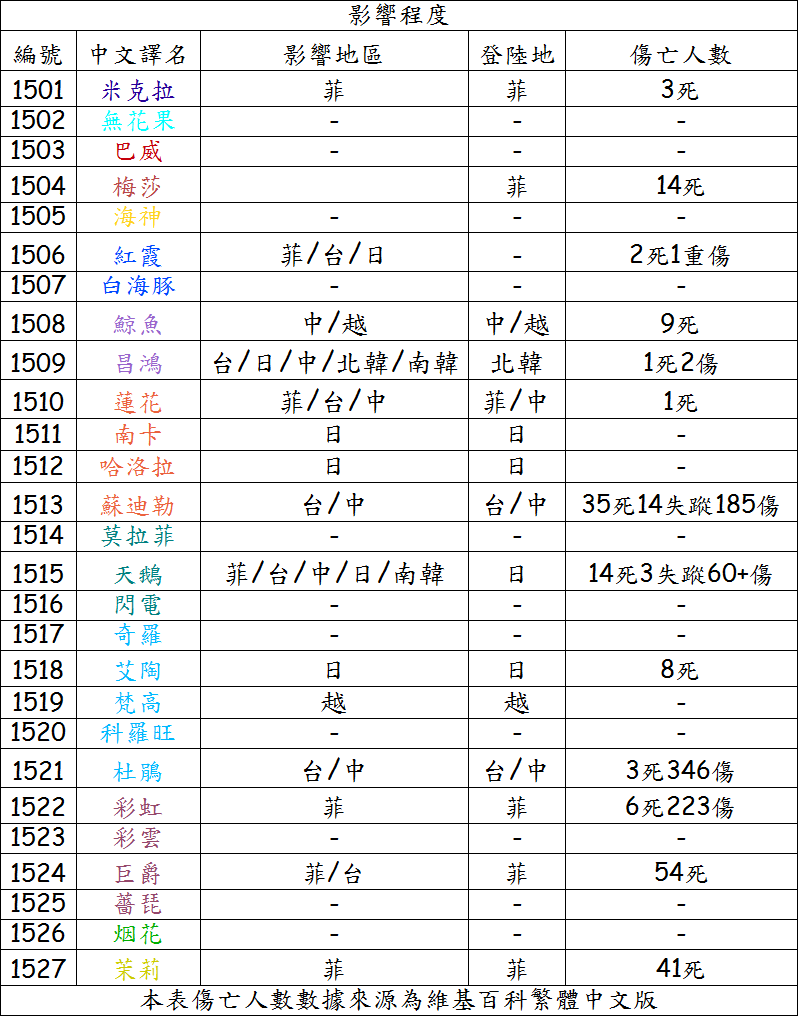 影響程度
編號 中文譯名 影響地區 登陸地 傷亡人數
1501 米克拉 菲 菲 3死
1502 無花果 - - -
1503 巴威 - - -
1504 梅莎 菲 14死
1505 海神 - - -
1506 紅霞 菲/台/日 - 2死1重傷
1507 白海豚 - - -
1508 鯨魚 中/越 中/越 9死
1509 昌鴻 台/日/中/北韓/南韓 北韓 1死2傷
1510 蓮花 菲/台/中 菲/中 1死
1511 南卡 日 日 -
1512 哈洛拉 日 日 -
1513 蘇迪勒 台/中 台/中 35死14失蹤185傷
1514 莫拉菲 - - -
1515 天鵝 菲/台/中/日/南韓 日 14死3失蹤60+傷
1516 閃電 - - -
1517 奇羅 - - -
1518 艾陶 日 日 8死
1519 梵高 越 越 -
1520 科羅旺 - - -
1521 杜鵑 台/中 台/中 3死346傷
1522 彩虹 菲 菲 6死223傷
1523 彩雲 - - -
1524 巨爵 菲/台 菲 54死
1525 薔琵 - - -
1526 烟花 - - -
1527 茉莉 菲 菲 41死
本表傷亡人數數據來源為維基百科繁體中文版